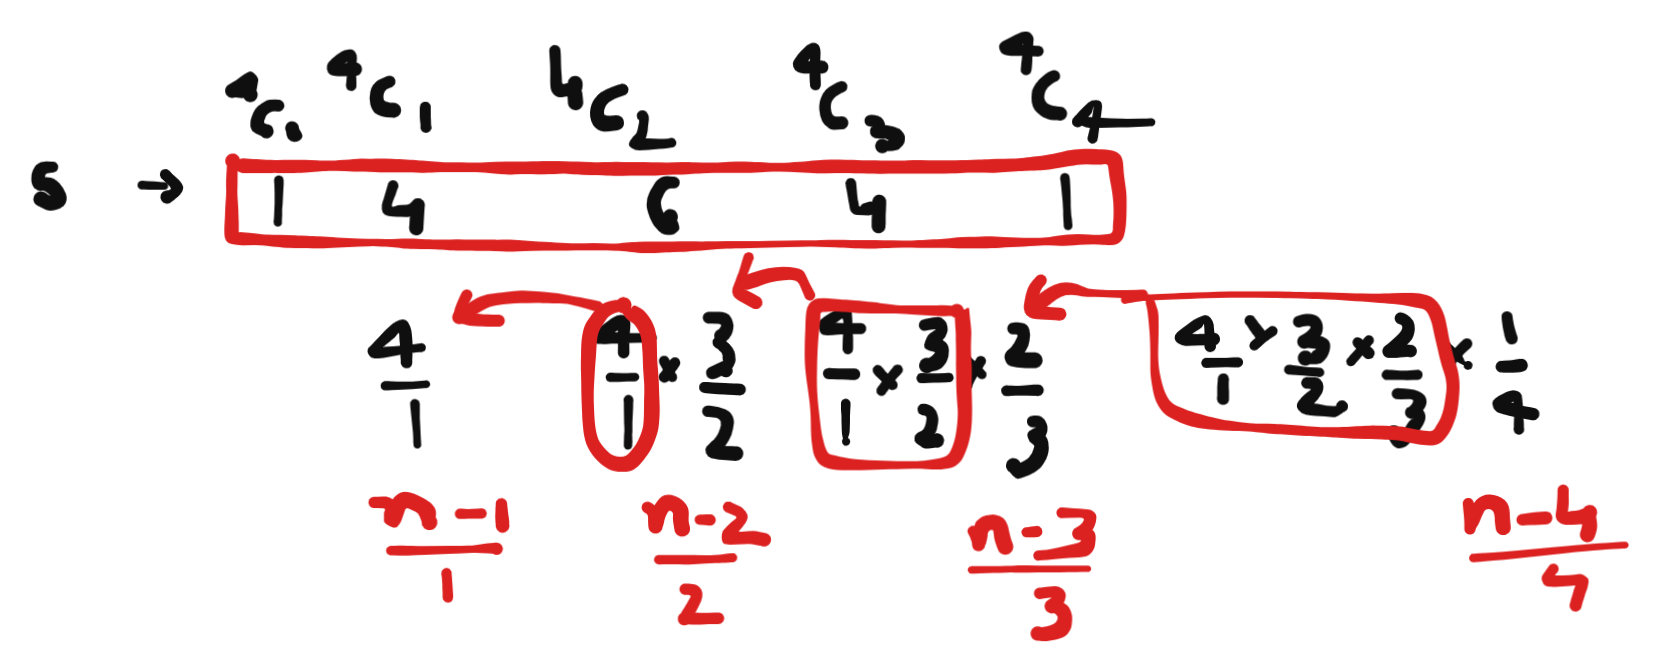 ⁴C₀ ⁴C₁ ⁴C₂ ⁴C₃ ⁴C₄
5 → 1 4 6 4 1
4/1 4/1 × 3/2 4/1 × 3/2 × 2/3 4/1 × 3/2 × 2/3 × 1/4
n-1/1 n-2/2 n-3/3 n-4/4